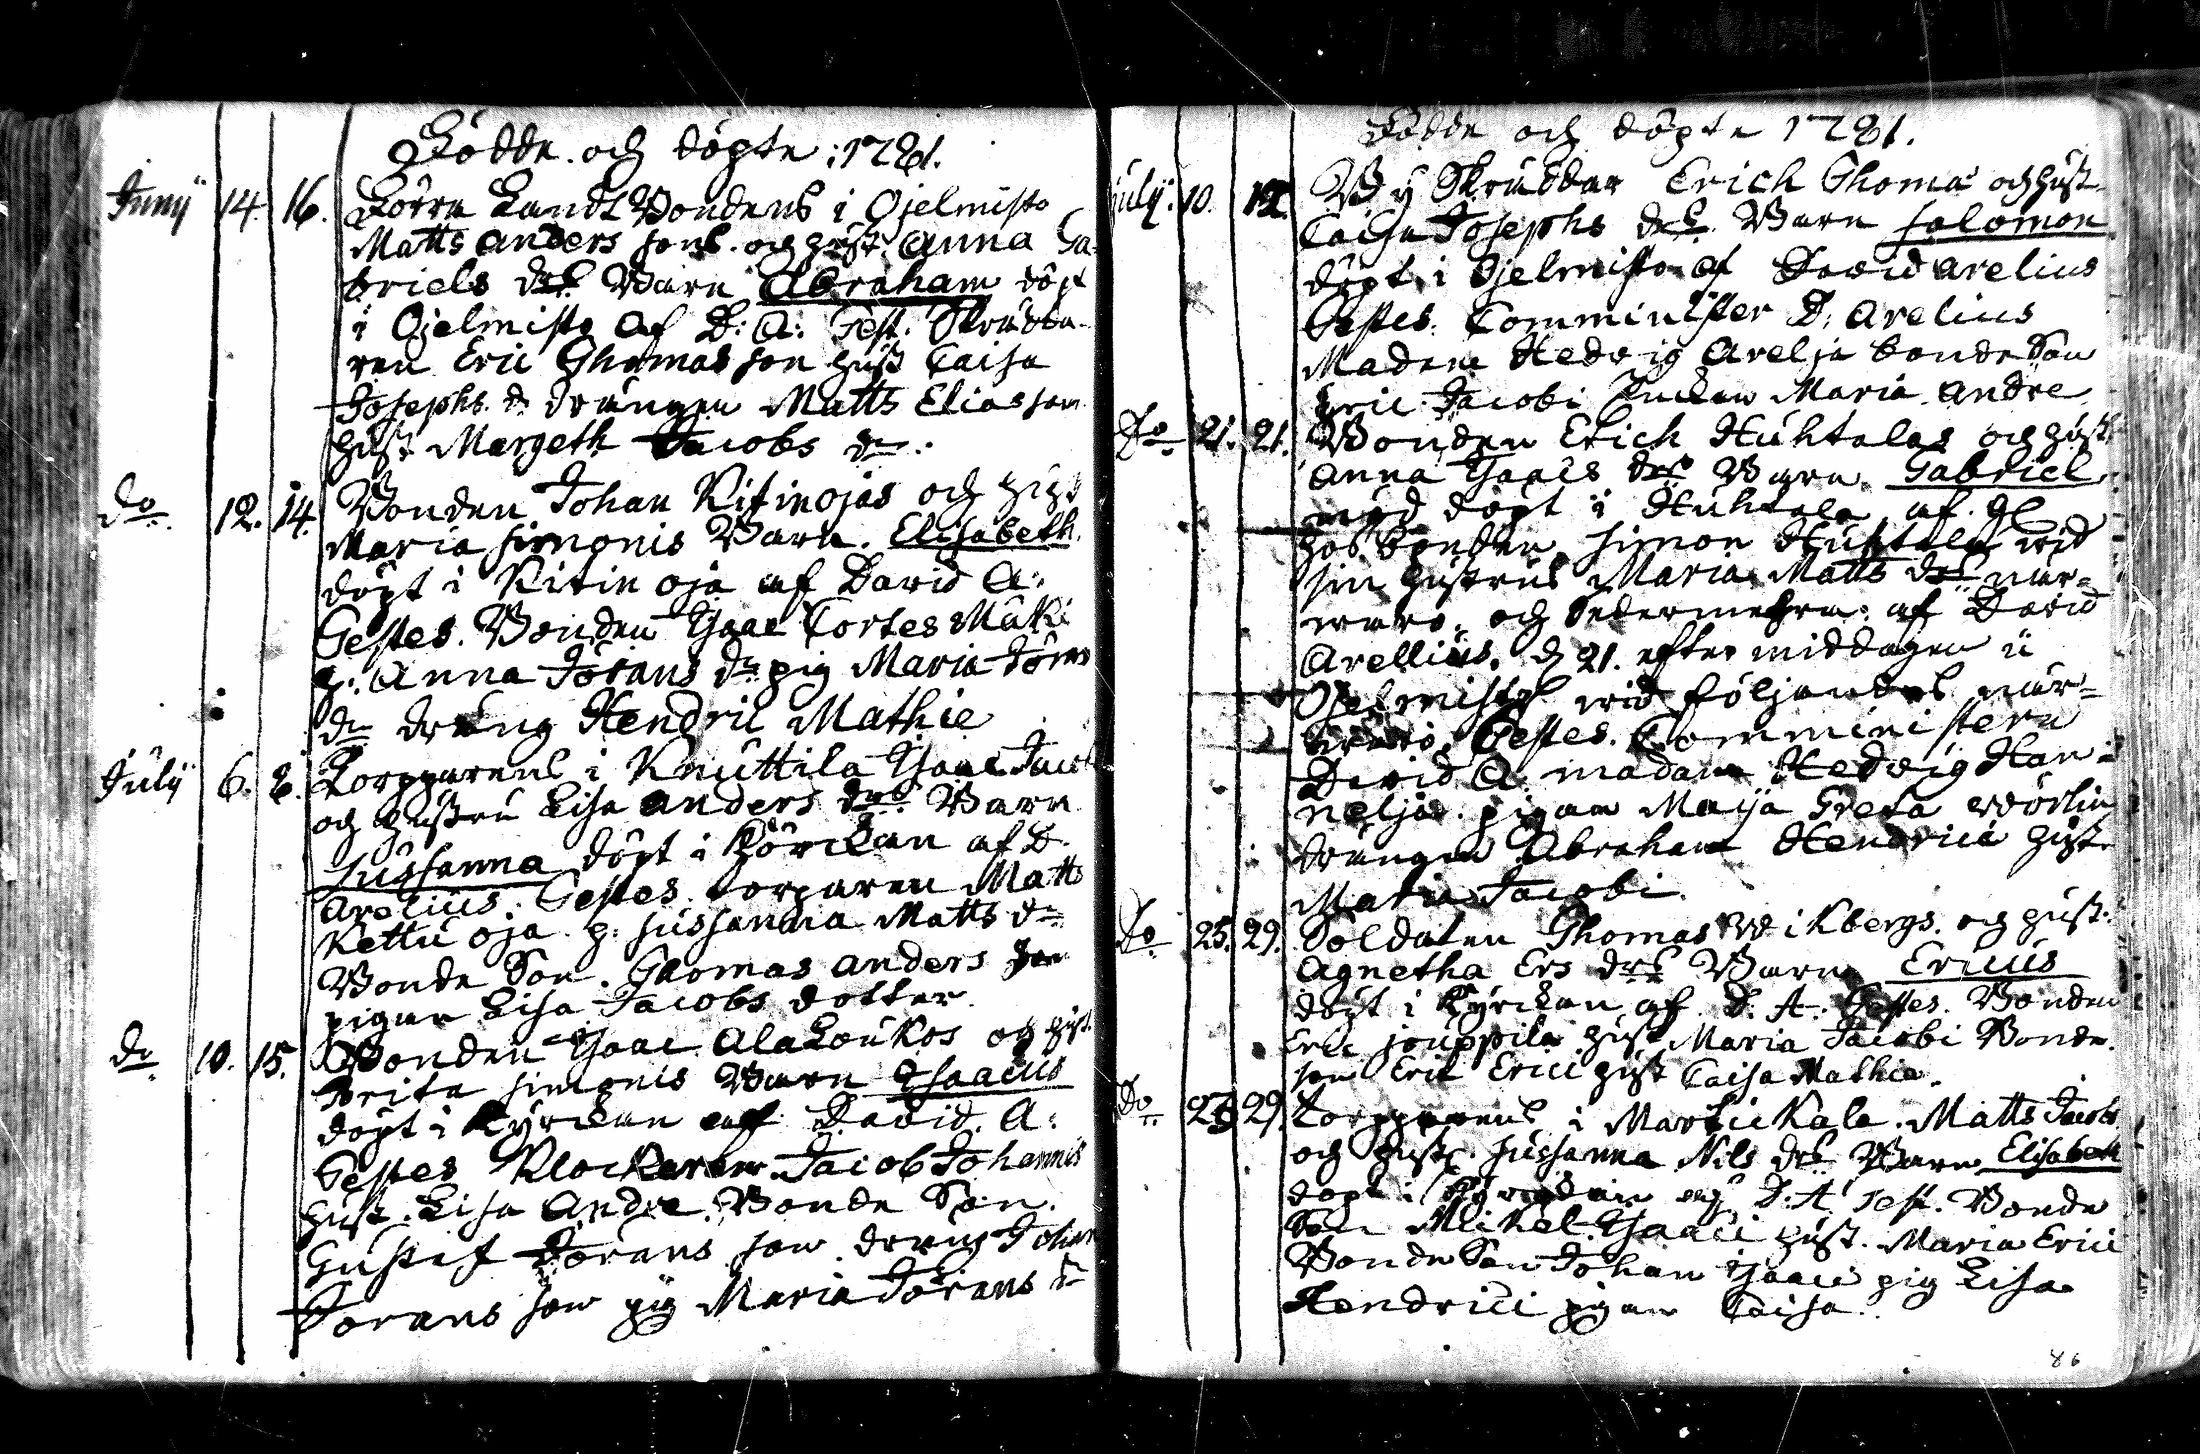 Födde och döpte 1781.
Junij 14. 16. Förra Landt Bondens i Ojelmisto
Matts Anders sons och hust. Anna Ga-
briels drs Barn Abraham döpt
i Ojelmisto af D: A: Test. Skrädda-
ren Eric Thomas son hust Caisa
Josephs d. drängen Matts Elias son
hust Margeth Jacobs dr.
Do 12. 14. Bonden Johan Kitinojas och hust
Maria Simonis Barn. Elisabeth.
döpt i Kitin oja af David A:
Testes. Bonden Isaac Tortes Mäki
h: Anna Jörans dr pig Maria Jörans
dr dräng Hendric Mathie
July 6. 8. Torpparens i Knuttila Isaac Jacobs
och hustru Lisa Anders drs Barn
Sussanna döpt i Körckan af D.
Arelius. Testes torparen Matts
Kettu oja h: Sussanna Matts dr
Bonde Son. Thomas Anders son
pigan Lisa Jacobs dotter.
Do 10. 15. Bonden Isaac AlaLoukos och hust.
Brita Simonis Barn Isaacus
döpt i Kyrckan af David. A:
Testes Klockaren Jacob Johannis
hust. Lisa Andre. Bonde Son.
Gustaf Jörans son dreng Johan
Jorans son pig Maria Jörans dr
Födde och döpte 1781.
July. 10. 12. By Skräddar Erich Thomæ och hust
Caisa Josephs drs. Barn Salomon
döpt i Ojelmisto af David Arelius
Testes. Comminister D: Arelius
Madam Hedvig Arelia bonde Son
Eric Jacobi Maria Andre
Do 21. 21. Bonden Erich Huhtalas och hust
Anna Isaacs drs Barn. Gabriel
nöd döpt i Huhtala af
Bonden Simon Huhtala wid
sin hustrus Maria Matts drs när-
waro. och sedermehra af David
Arellius. d 21. efter middagen i
Ojelmisto wid följandes när-
waro. Testes. Comministern
David A. madam Hedvig Han-
nelia. pigan Maija Greta
drängen Abraham Hendrici hust
Maria Jacobi.
Do 25. 29. Soldaten Thomas Wikbergs. och hust.
Agnetha Ers drs Barn Ericus
döpt i Kyrckan af D. A. Testes. Bonden
Eric jouppila hust Maria Jacobi Bonde
son Eric Erici hust Caisa Mathie.
Do 29. Torpparens i Martickala. Matts Jacobs
och hust. Sussanna Nils drs Barn Elisabeth
döpt i Kyrckan af D. A Test. Bonde
Son Mickel Isaaci hust. Maria Erici
Bonde Son Johan Isaaci pig Lisa
Hendrici pigan Caisa.
86